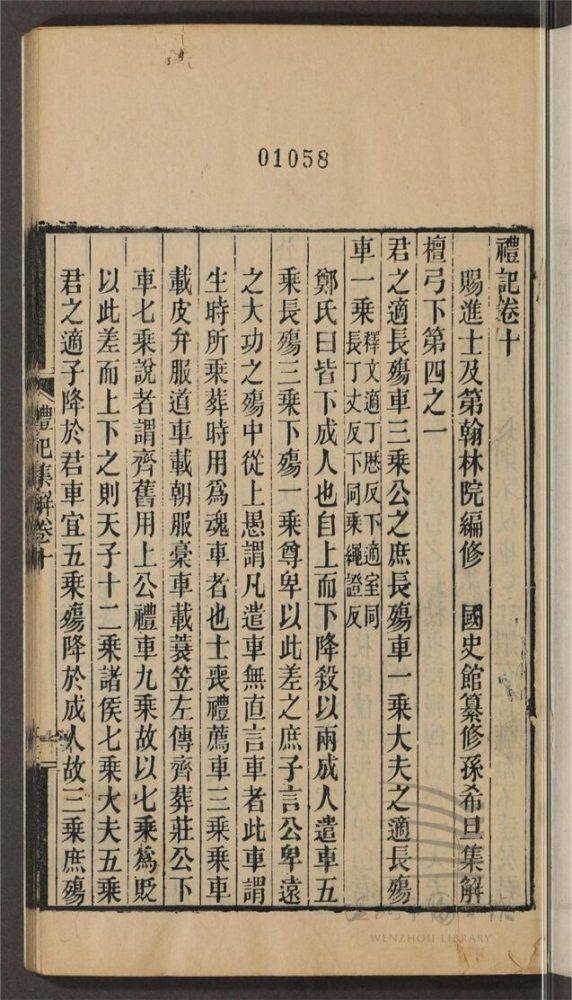 01058
禮記卷十
賜進士及第翰林院編修 國史館纂修孫希旦集解
檀弓下第四之一
君之適長殤車三乘公之庶長殤車一乘大夫之適長殤
車一乘釋文適丁厯反下適室同
長丁丈反下同乘繩證反
鄭氏曰皆下成人也自上而下降殺以兩成人遣車五
乘長殤三乘下殤一乘尊卑以此差之庶子言公卑遠
之大功之殤中從上愚謂凡遣車無直言車者此車謂
生時所乘葬時用爲魂車者也士喪禮薦車三乘乘車
載皮弁服道車載朝服稾車載蓑笠左傳齊葬莊公下
車七乘說者謂齊舊用上公禮車九乘故以七乘爲貶
以此差而上下之則天子十二乘諸侯七乘大夫五乘
君之適子降於君車宜五乘殤降於成人故三乘庶殤
禮記集解卷十
一
WENZHOU LIBRARY